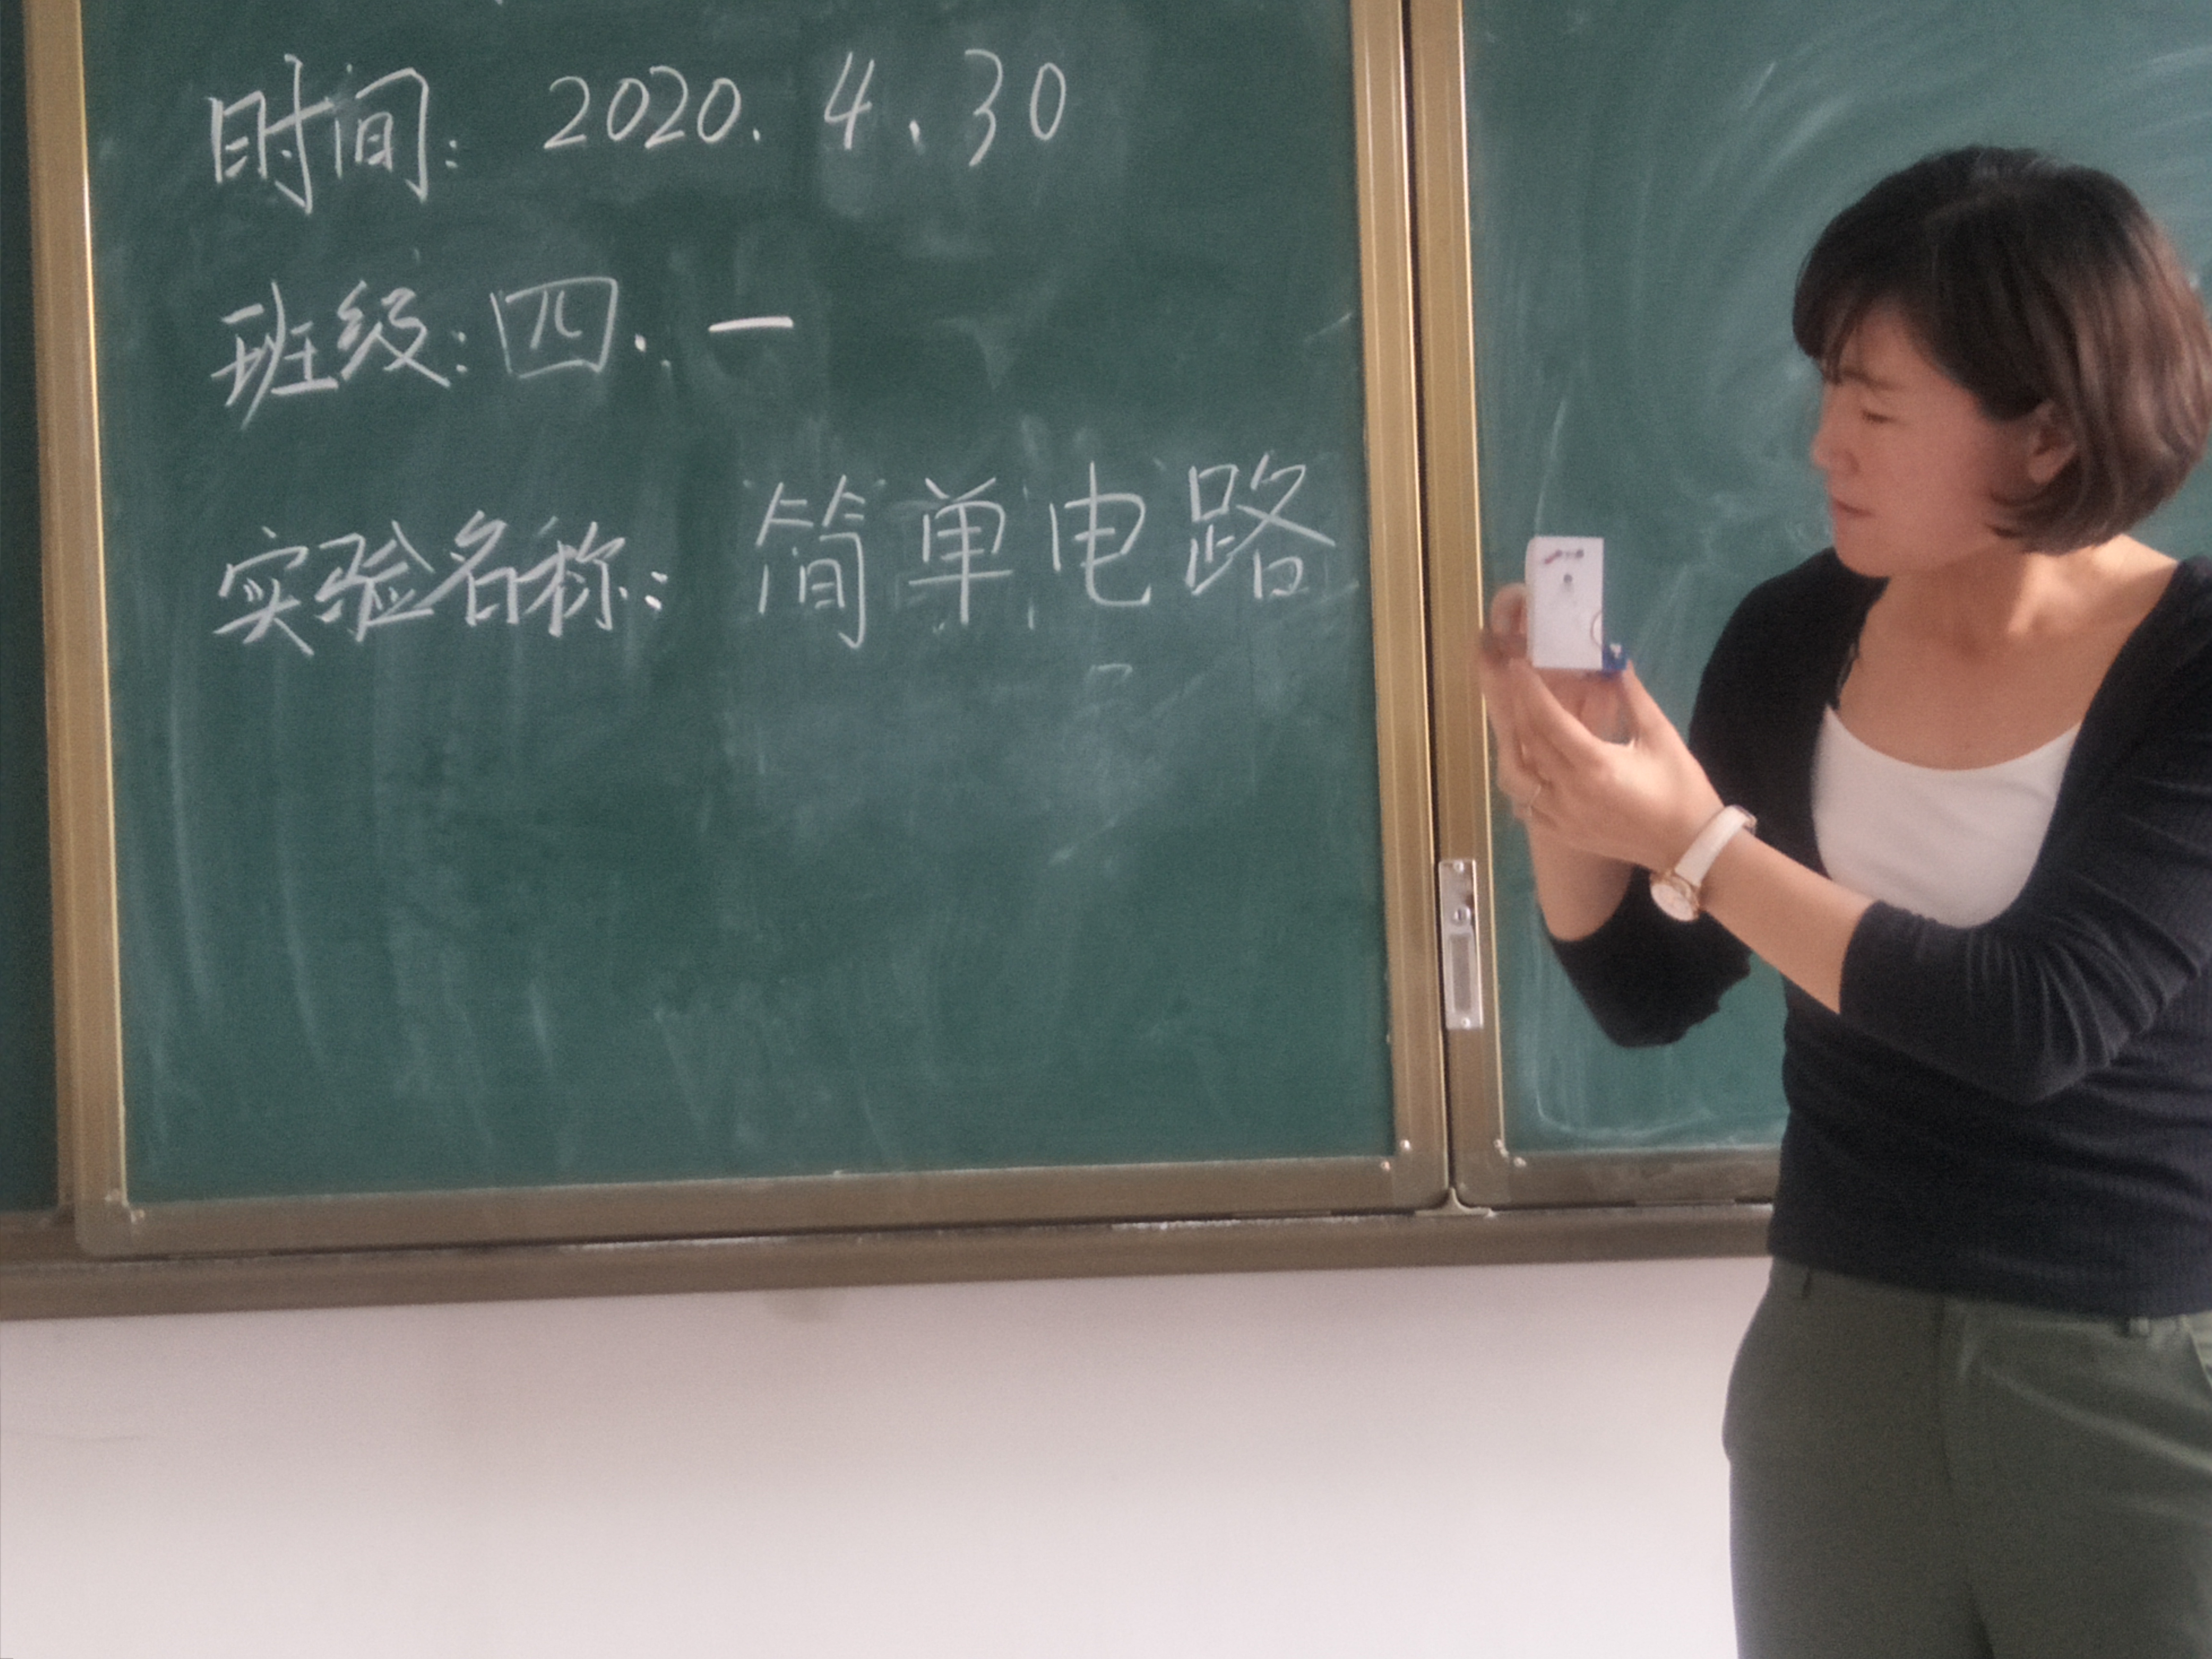 时间: 2020.4.30
班级:四.一
实验名称:简单电路